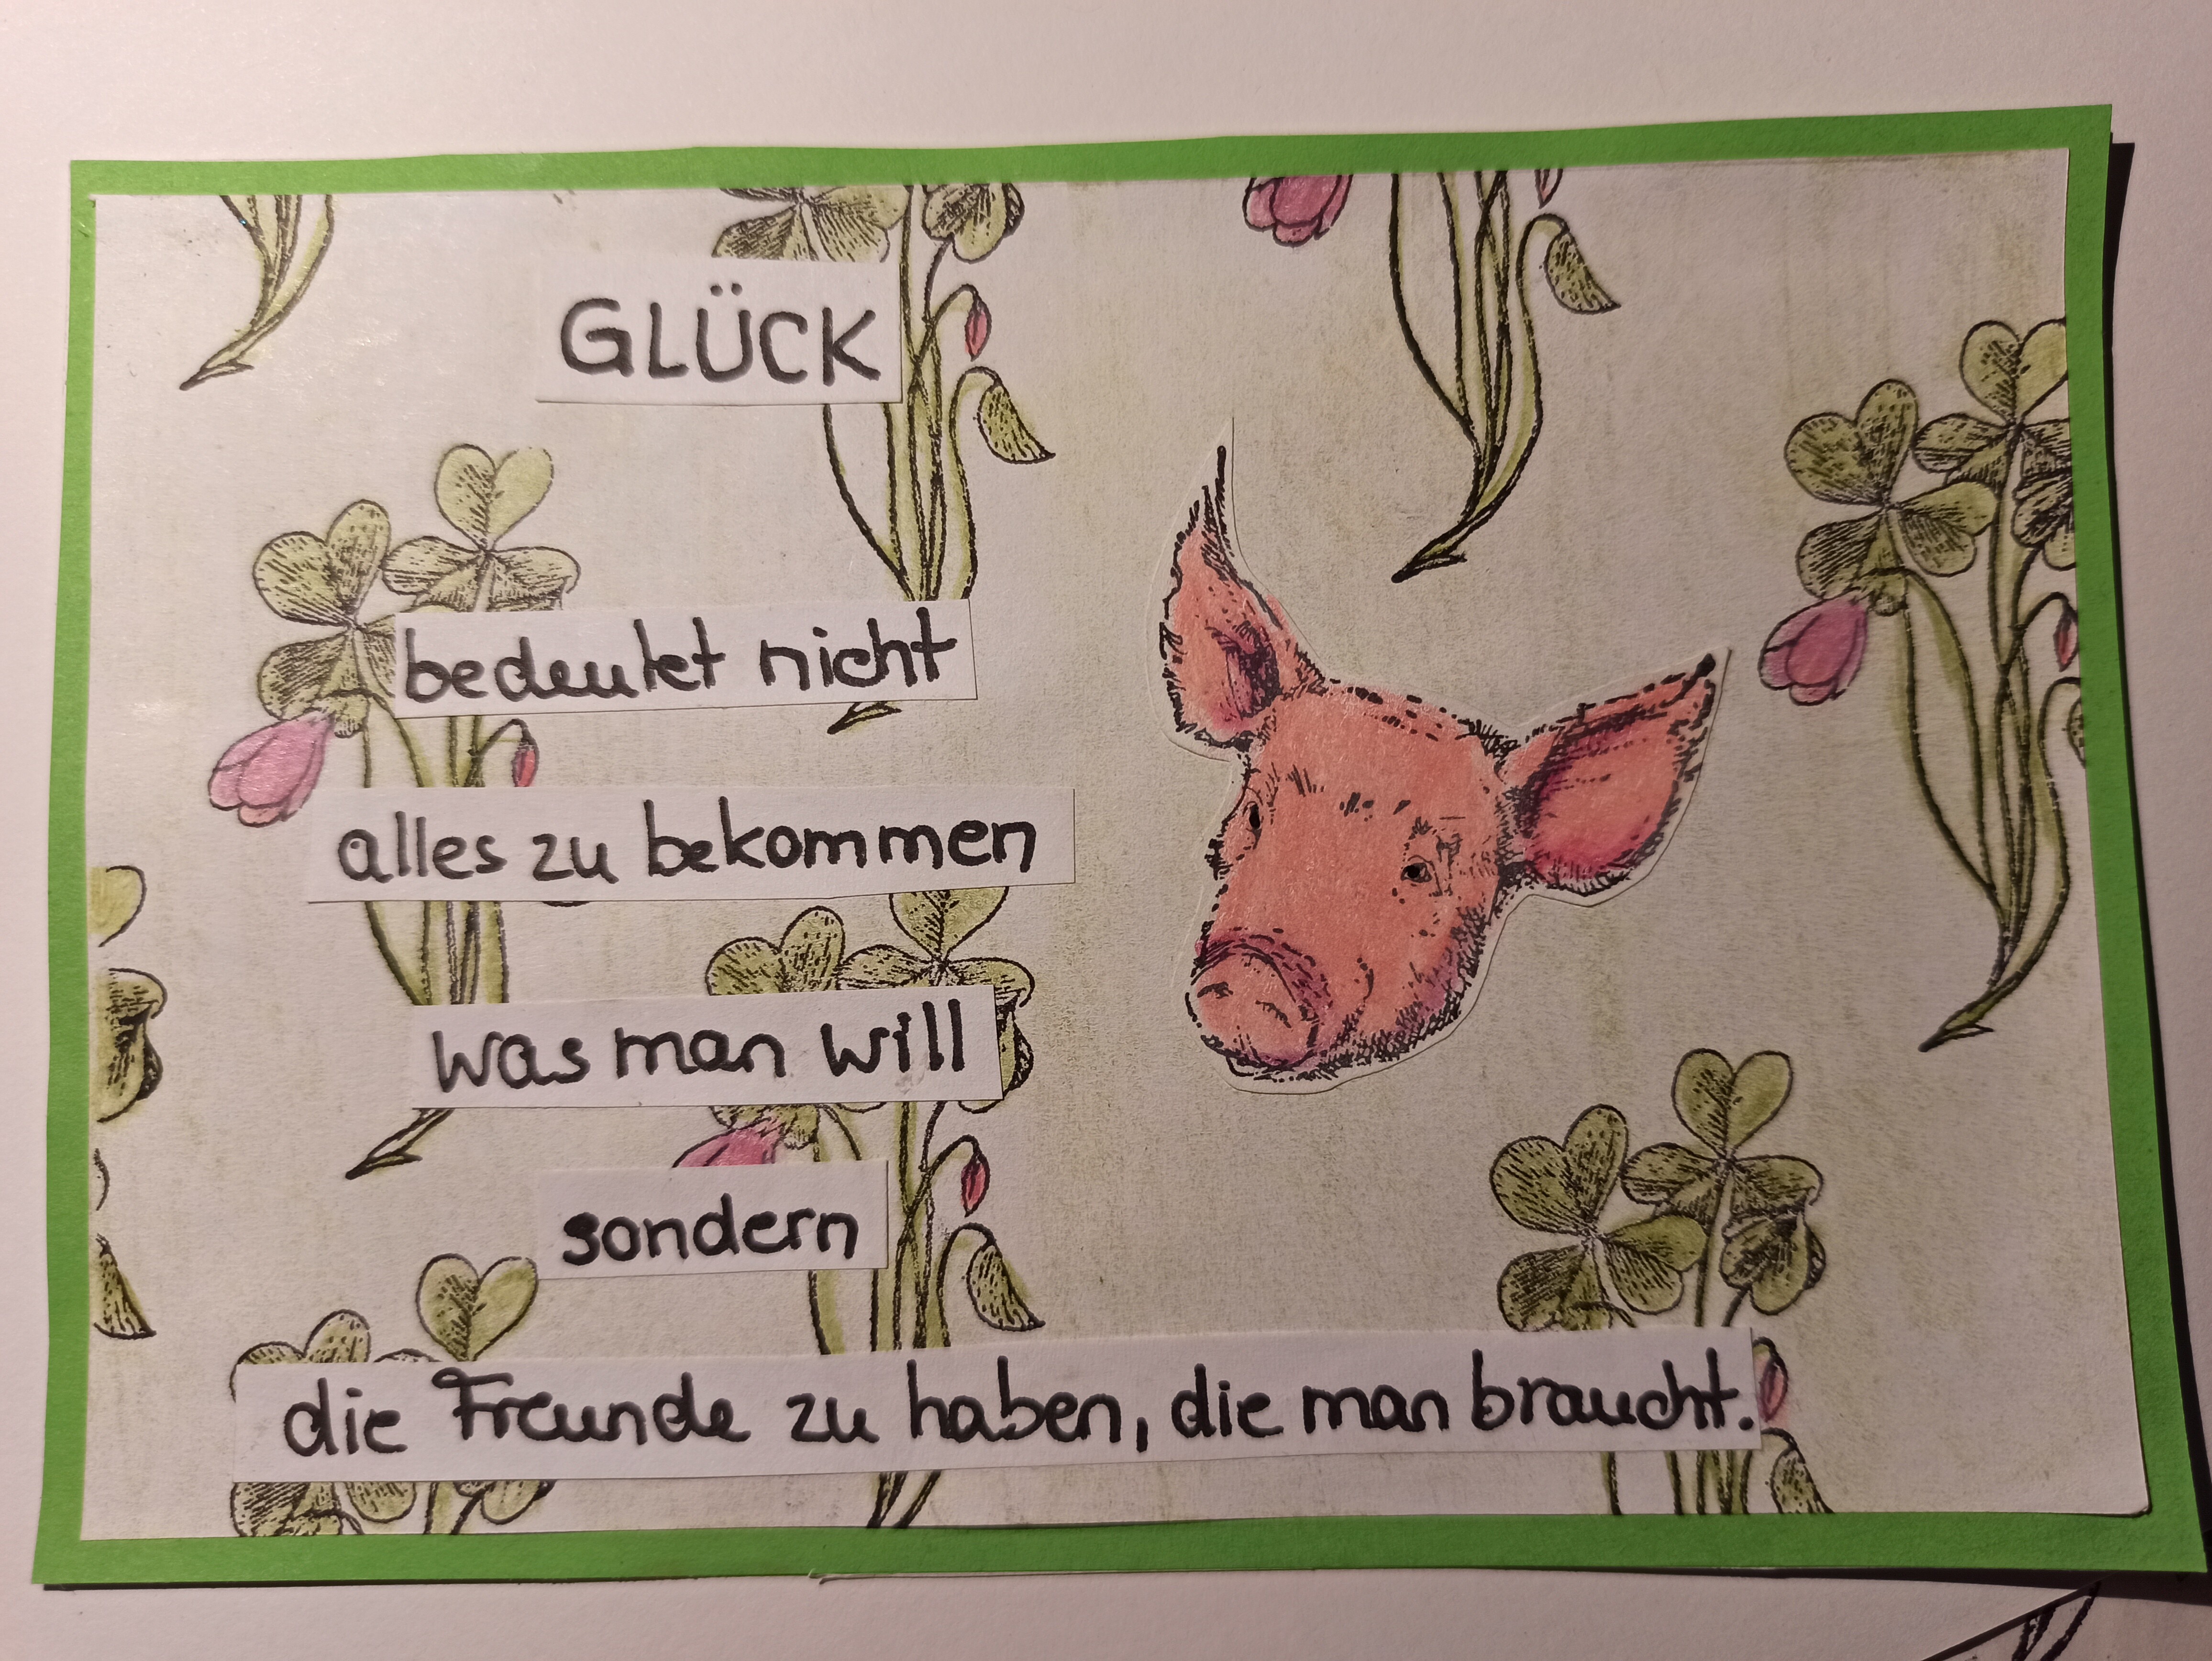 GLÜCK
bedeutet nicht
alles zu bekommen
was man will
sondern
die Freunde zu haben, die man braucht.